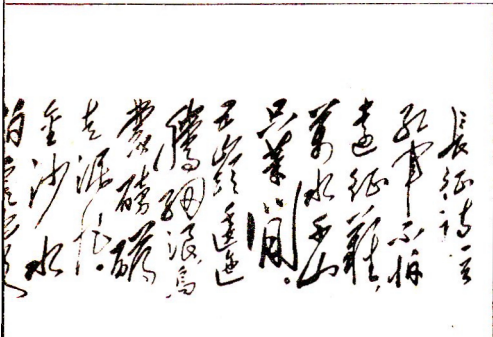 長征詩一首
紅軍不怕
遠征難，
萬水千山
只等閒。
五嶺逶迤
騰細浪，烏
蒙磅礴
走泥丸。
金沙水